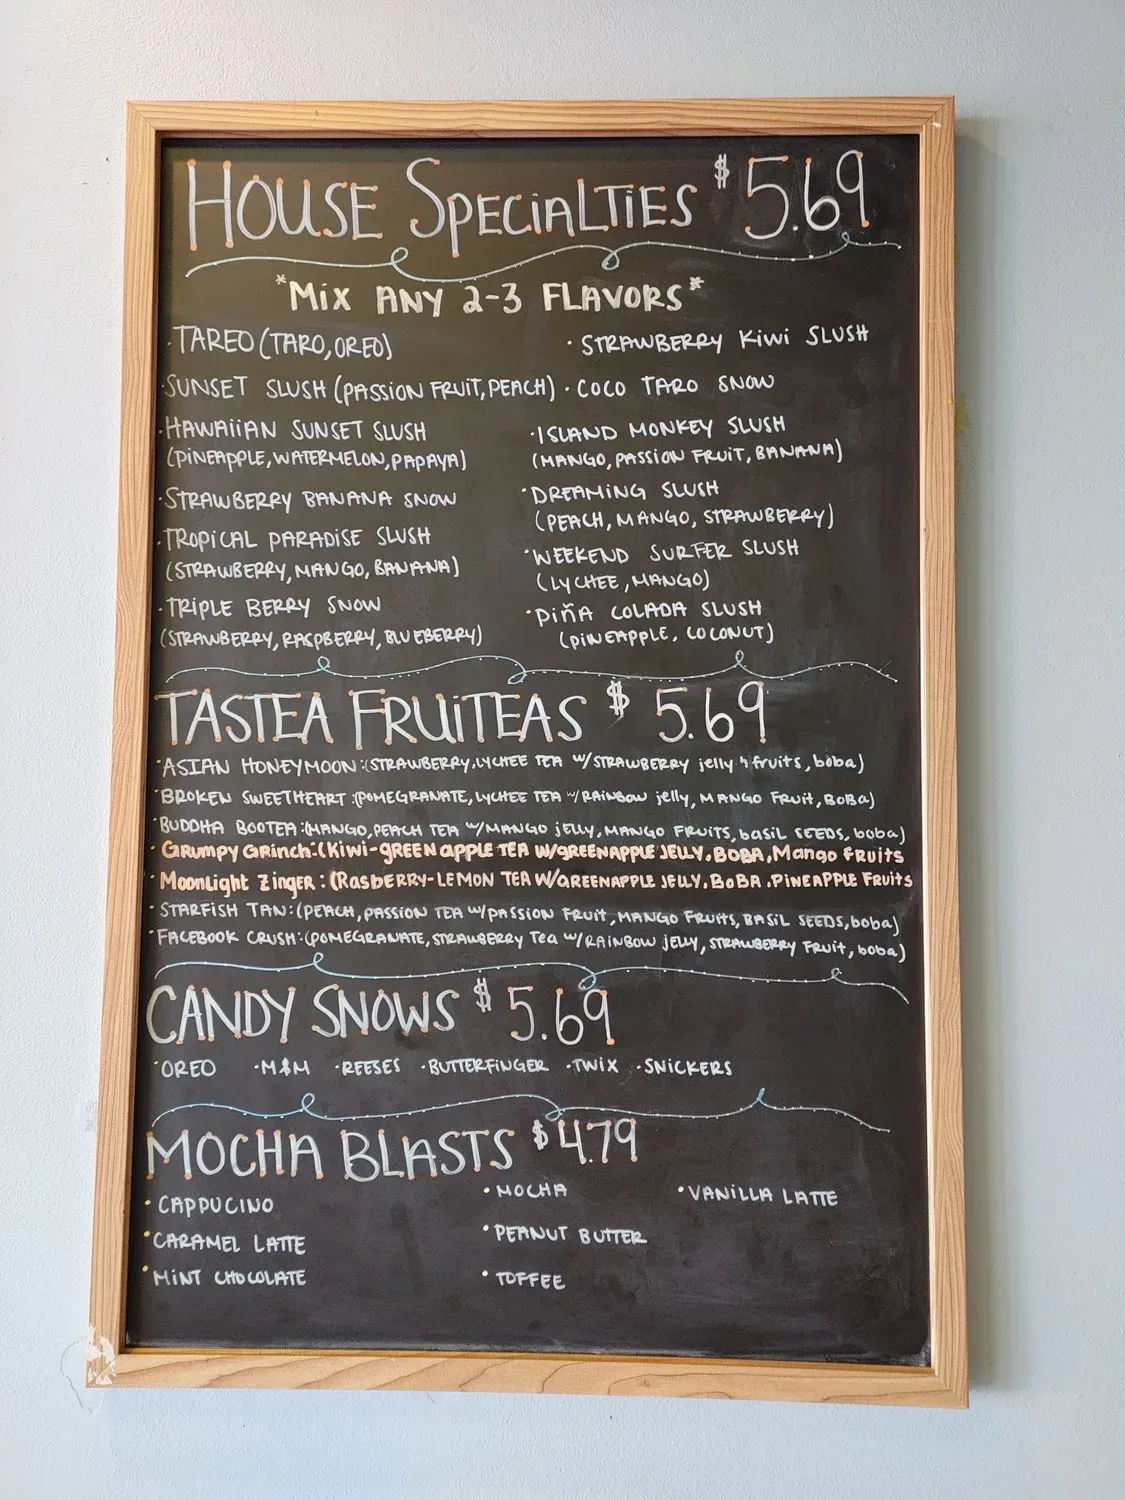 HOUSE SPECIALTIES $5.69
*MIX ANY 2-3 FLAVORS*
·TAREO (TARO, OREO)
·STRAWBERRY KIWI SLUSH
·SUNSET SLUSH (PASSION FRUIT, PEACH)
·COCO TARO SNOW
·HAWAIIAN SUNSET SLUSH
(PINEAPPLE, WATERMELON, PAPAYA)
·ISLAND MONKEY SLUSH
(MANGO, PASSION FRUIT, BANANA)
·STRAWBERRY BANANA SNOW
·DREAMING SLUSH
(PEACH, MANGO, STRAWBERRY)
·TROPICAL PARADISE SLUSH
(STRAWBERRY, MANGO, BANANA)
·WEEKEND SURFER SLUSH
(LYCHEE, MANGO)
·TRIPLE BERRY SNOW
(STRAWBERRY, RASPBERRY, BLUEBERRY)
·PIÑA COLADA SLUSH
(PINEAPPLE, COCONUT)
TASTEA FRUITEAS $5.69
·ASIAN HONEYMOON:(STRAWBERRY, LYCHEE TEA W/STRAWBERRY jelly & fruits, boba)
·BROKEN SWEETHEART:(POMEGRANATE, LYCHEE TEA W/RAINBOW jelly, MANGO FRUIT, BOBA)
·BUDDHA BOOTEA:(MANGO, PEACH TEA W/MANGO jELLY, MANGO FRUITS, basil SEEDS, boba)
·GRUMPY GRINCH:(KIWI-GREEN APPLE TEA W/GREENAPPLE JELLY, BOBA, Mango FRUITS
·MOONLIGHT ZINGER:(RASBERRY-LEMON TEA W/GREENAPPLE JELLY, BOBA, PINEAPPLE FRUITS
·STARFISH TAN:(PEACH, PASSION TEA W/PASSION FRUIT, MANGO FRUITS, BASIL SEEDS, boba)
·FACEBOOK CRUSH:(POMEGRANATE, STRAWBERRY TEA W/RAINBOW jELLY, STRAWBERRY FRUIT, boba)
CANDY SNOWS $5.69
·OREO ·M&M ·REESES ·BUTTERFINGER ·TWIX ·SNICKERS
MOCHA BLASTS $4.79
·CAPPUCINO
·MOCHA
·VANILLA LATTE
·CARAMEL LATTE
·PEANUT BUTTER
·MINT CHOCOLATE
·TOFFEE